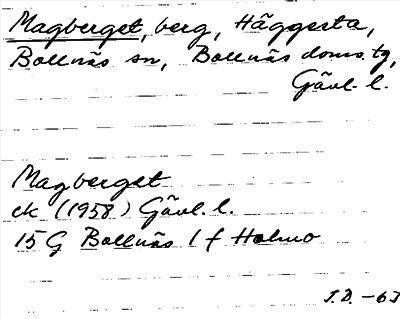 Magberget, berg, Häggesta,
Bollnäs sn, Bollnäs doms. tg,
Gävl. l.
Magberget
ek (1958) Gävl. l.
15 G Bollnäs 1 f Holmo
J.D. - 63